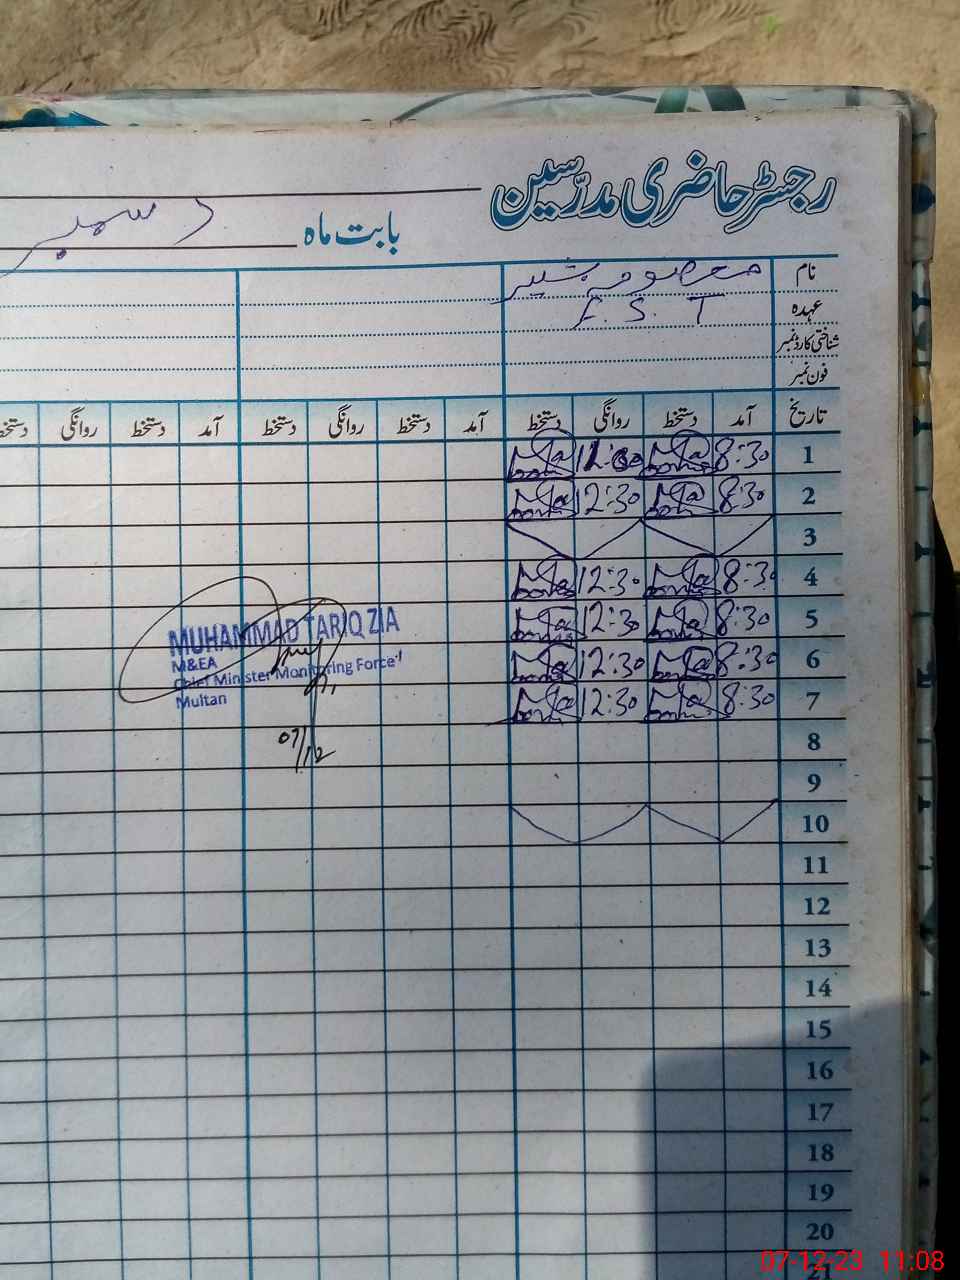 رجسٹر حاضری مدرّسین
بابت ماہ دسمبر
نام معصومہ
عہدہ E. S. T
شناختی کارڈ نمبر
فون نمبر
تاریخ آمد دستخط روانگی دستخط آمد دستخط روانگی دستخط آمد دستخط روانگی دستخط
1 8:30
2 8:30 12:30
3
4 8:30 12:30
5 8:30 12:30
6 8:30 12:30
7 8:30 12:30
8
9
10
11
12
13
14
15
16
17
18
19
20
MUHAMMAD TARIQ ZIA
M&EA
Chief Minister Monitoring Force
Multan
07/12
07-12-23 11:08